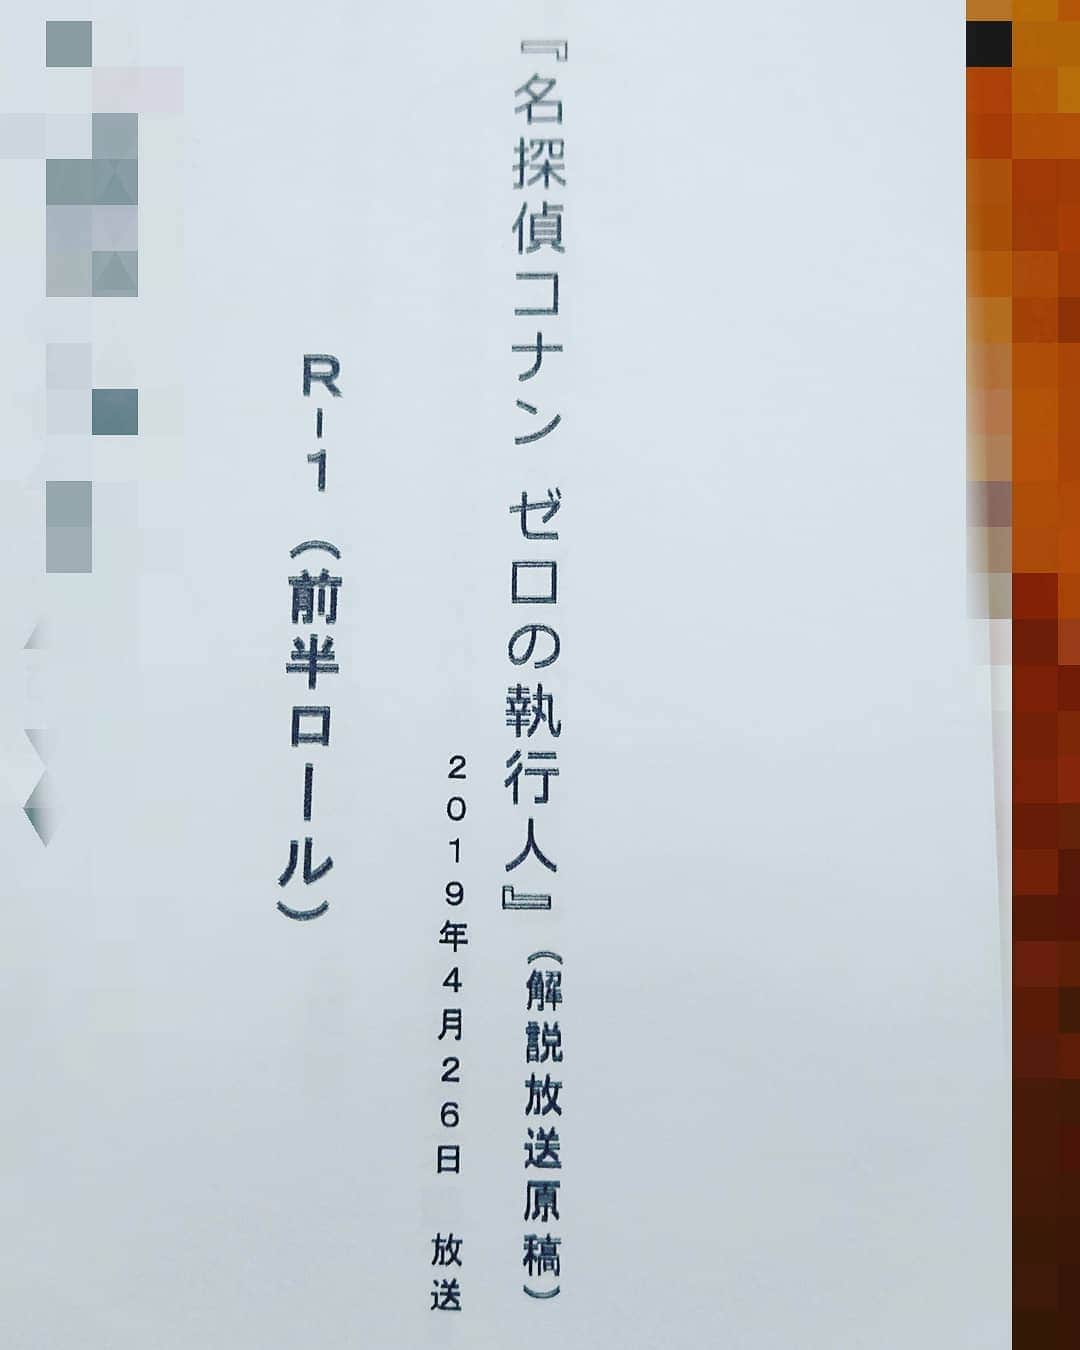 『名探偵コナン ゼロの執行人』(解説放送原稿)
2019年4月26日 放送
R-1(前半ロール)